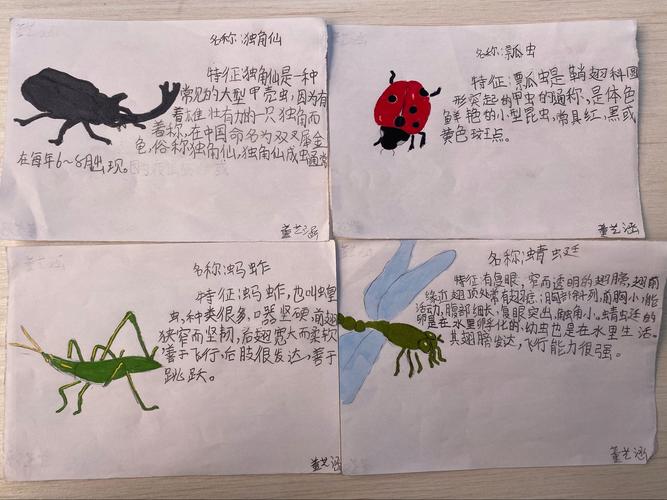 名称:独角仙
特征独角仙是一种
常见的大型甲壳虫,因为有
着雄壮有力的一只独角而
著称,在中国命名为双叉犀金
色,俗称独角仙,独角仙成虫通常
在每年6~8月出现。
董艺涵
名称:瓢虫
特征:瓢瓜虫是鞘翅科圆
形突起的甲虫的通称,是体色
鲜艳的小型昆虫,常具红,黑或
黄色斑点。
董艺涵
名称:蚂蚱
特征:蚂蚱,也叫蝗
虫,种类很多,口器坚硬,前翅
狭窄而坚韧,后翅宽大而柔软
善于飞行,后肢很发达,善于
跳跃。
董艺涵
名称:蜻蜓
特征有复眼,窄而透明的翅膀,翅前
缘近翅顶处常有翅痣;胸部斜列,前胸小,能
活动,腹部细长,复眼突出,触角小。蜻蜓的
卵是在水里孵化的,幼虫也是在水里生活。
其翅膀发达,飞行能力很强。
董艺涵